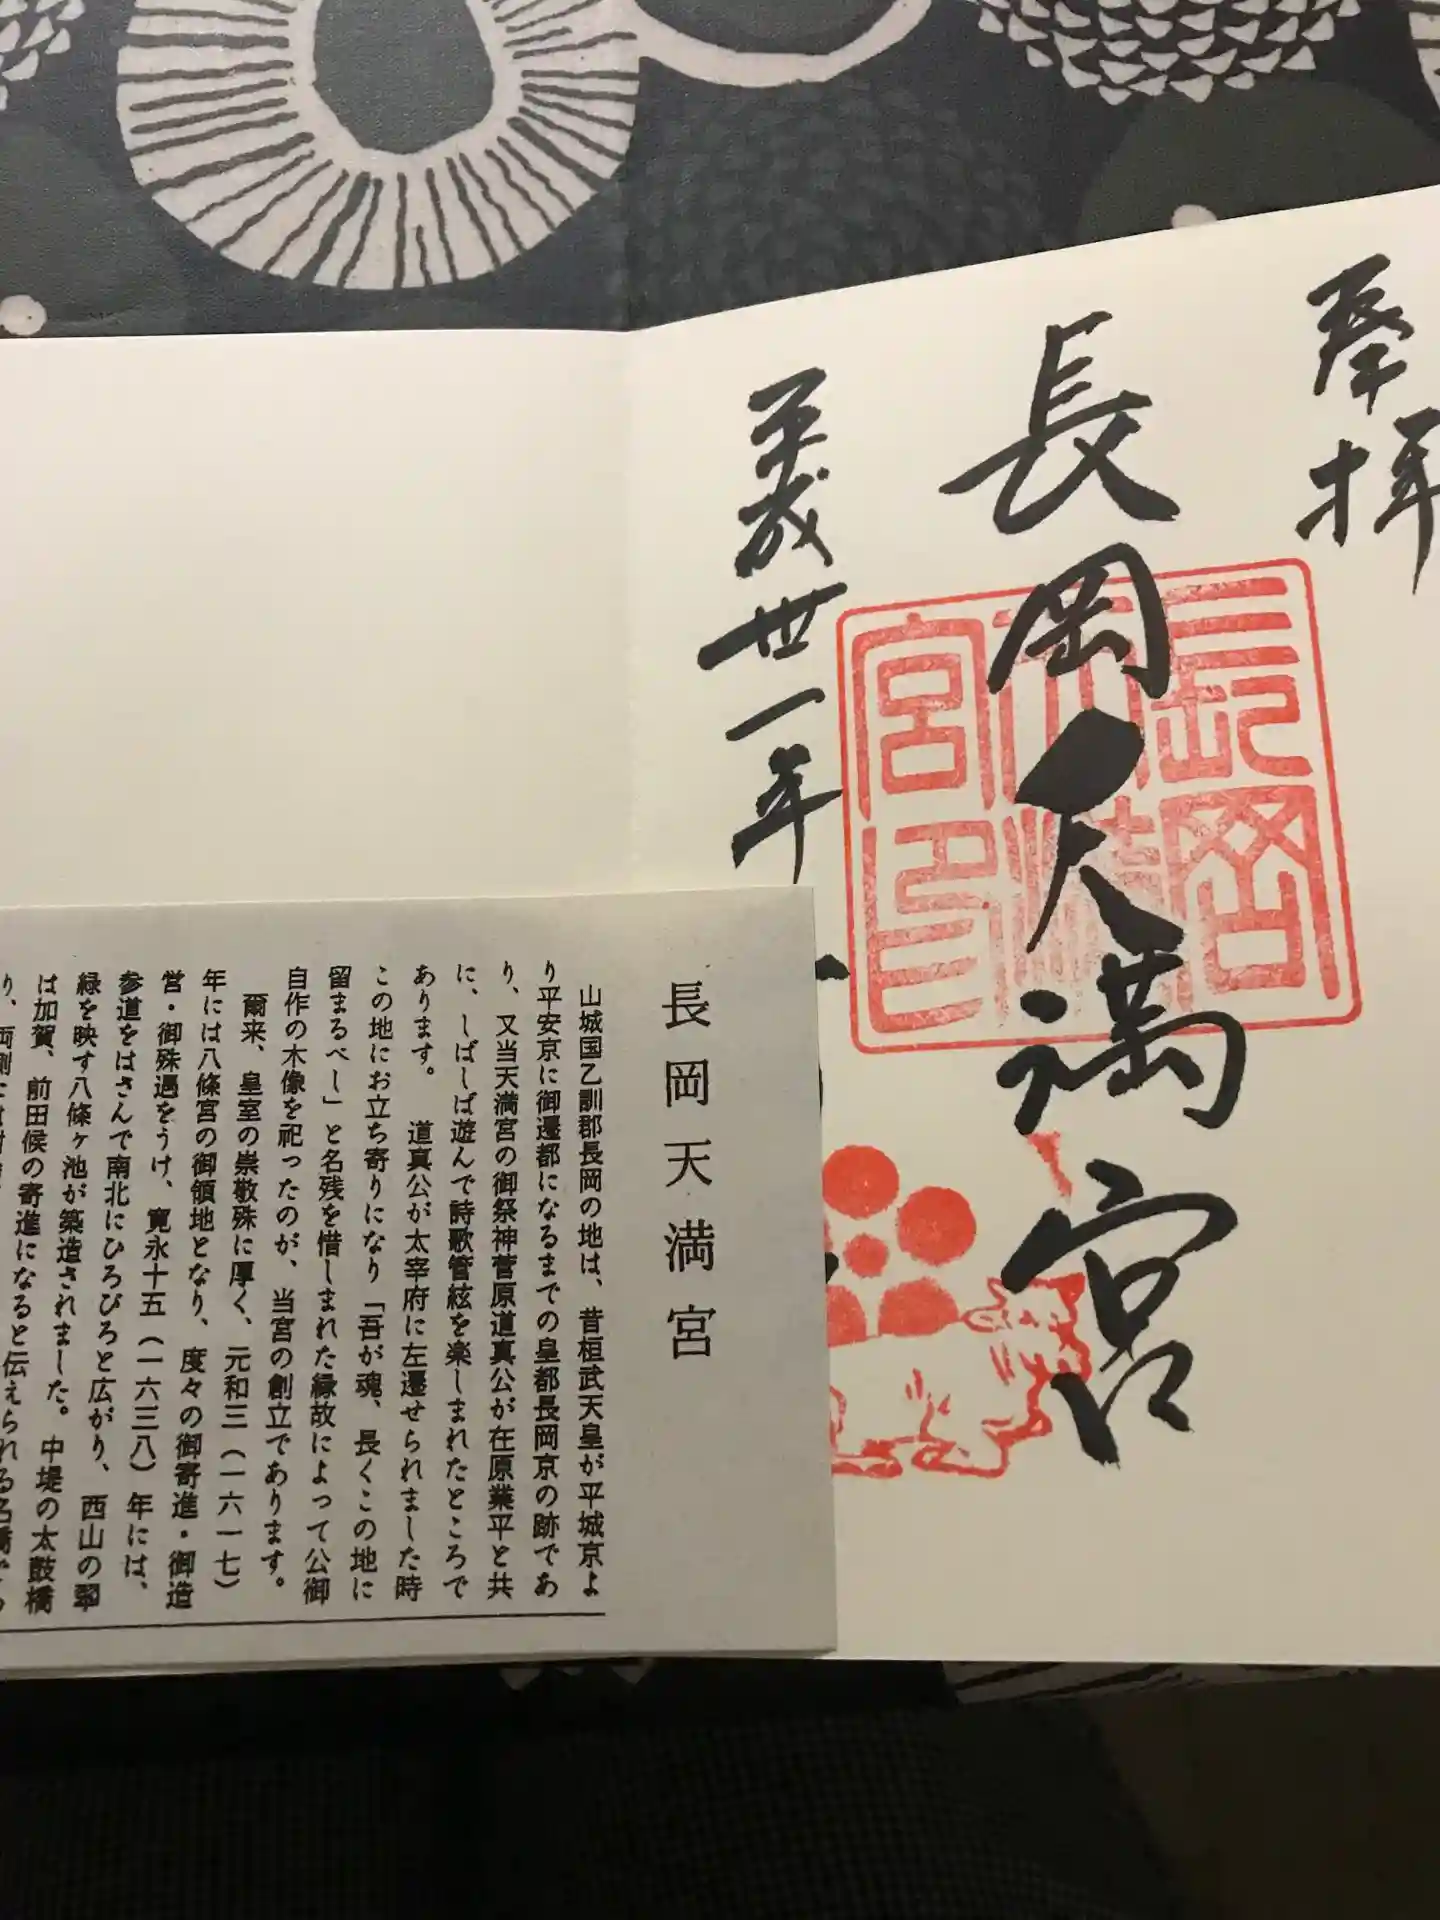 奉拝
長岡天満宮
平成丗一年
長岡天満宮印
長岡天満宮
山城国乙訓郡長岡の地は、昔桓武天皇が平城京よ
り平安京に御遷都になるまでの皇都長岡京の跡であ
り、又当天満宮の御祭神菅原道真公が在原業平と共
に、しばしば遊んで詩歌管絃を楽しまれたところで
あります。　道真公が太宰府に左遷せられました時
この地にお立ち寄りになり「吾が魂、長くこの地に
留まるべし」と名残を惜しまれた縁故によって公御
自作の木像を祀ったのが、当宮の創立であります。
爾来、皇室の崇敬殊に厚く、元和三（一六一七）
年には八條宮の御領地となり、度々の御寄進・御造
営・御殊遇をうけ、寛永十五（一六三八）年には、
参道をはさんで南北にひろびろと広がり、西山の翠
緑を映す八條ヶ池が築造されました。中堤の太鼓橋
は加賀、前田候の寄進になると伝えられる名橋であ